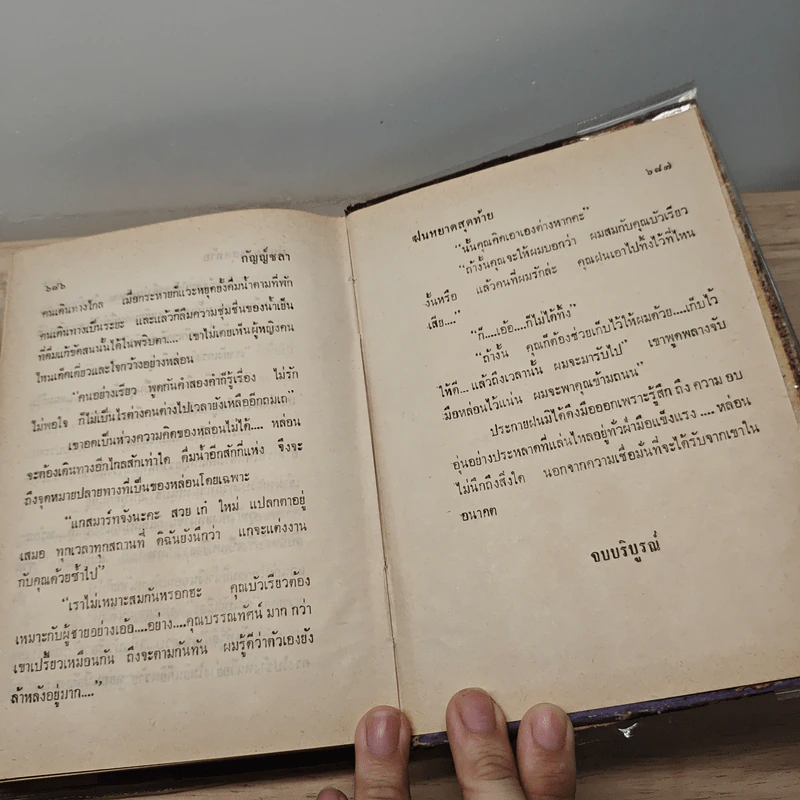 ๖๘๖
กัญญ์ชลา
คนเดินทางไกล เมื่อกระหายก็แวะหยุดยั้งดื่มน้ำตามที่พัก
คนเดินทางเป็นระยะ และแล้วก็ลืมความชุ่มชื่นของน้ำเย็น
ที่ดื่มแก้ขัดสนนั้นได้ในพริบตา.... เขาไม่เคยเห็นผู้หญิงคน
ไหนเด็ดเดี่ยวและใจกว้างอย่างหล่อน
“คนอย่างเรียว พูดกันคำสองคำก็รู้เรื่อง ไม่รัก
ไม่พอใจ ก็ไม่เป็นไรต่างคนต่างไปเวลายังเหลืออีกถมเถ”
เขาอดเป็นห่วงความคิดของหล่อนไม่ได้.... หล่อน
จะต้องเดินทางอีกไกลสักเท่าใด ดื่มน้ำอีกสักกี่แห่ง จึงจะ
ถึงจุดหมายปลายทางที่เป็นของหล่อนโดยเฉพาะ
“แกสมาร์ทจังนะคะ สวย เก๋ ใหม่ แปลกตาอยู่
เสมอ ทุกเวลาทุกสถานที่ ดิฉันยังนึกว่า แกจะแต่งงาน
กับคุณด้วยซ้ำไป”
“เราไม่เหมาะสมกันหรอกฮะ คุณบัวเรียวต้อง
เหมาะกับผู้ชายอย่างเอ้อ....อย่าง....คุณบรรณทัศน์ มาก กว่า
เขาเปรี้ยวเหมือนกัน ถึงจะตามกันทัน ผมรู้ดีว่าตัวเองยัง
ล้าหลังอยู่มาก....”
๖๘๗
ฝนหยาดสุดท้าย
“นั้นคุณคิดเอาเองต่างหากคะ”
“ถ้างั้นคุณจะให้ผมบอกว่า ผมสมกับคุณบัวเรียว
งั้นหรือ แล้วคนที่ผมรักล่ะ คุณฝนเอาไปทิ้งไว้ที่ไหน
เสีย....”
“ก็....เอ้อ....ก็ไม่ได้ทิ้ง”
“ถ้างั้น คุณก็ต้องช่วยเก็บไว้ให้ผมด้วย....เก็บไว้
ให้ดี... แล้วถึงเวลานั้น ผมจะมารับไป” เขาพูดพลางจับ
มือหล่อนไว้แน่น ผมจะพาคุณข้ามถนน”
ประกายฝนมิได้ดึงมือออกเพราะรู้สึก ถึง ความ อบ
อุ่นอย่างประหลาดที่แล่นไหลอยู่ทั่วฝ่ามือแข็งแรง .... หล่อน
ไม่นึกถึงสิ่งใด นอกจากความเชื่อมั่นที่จะได้รับจากเขาใน
อนาคต
จบบริบูรณ์